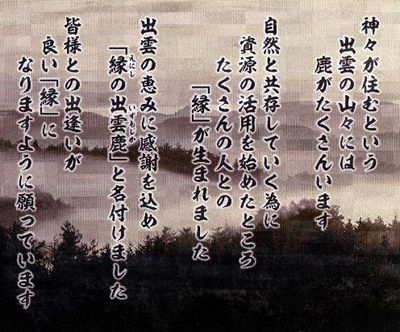 神々が住むという
出雲の山々には
鹿がたくさんいます
自然と共存していく為に
資源の活用を始めたところ
たくさんの人との
「縁」が生まれました
出雲の恵みに感謝を込め
「縁の出雲鹿」と名付けました
えにし いずもじか
皆様との出逢いが
良い「縁」に
なりますように願っています